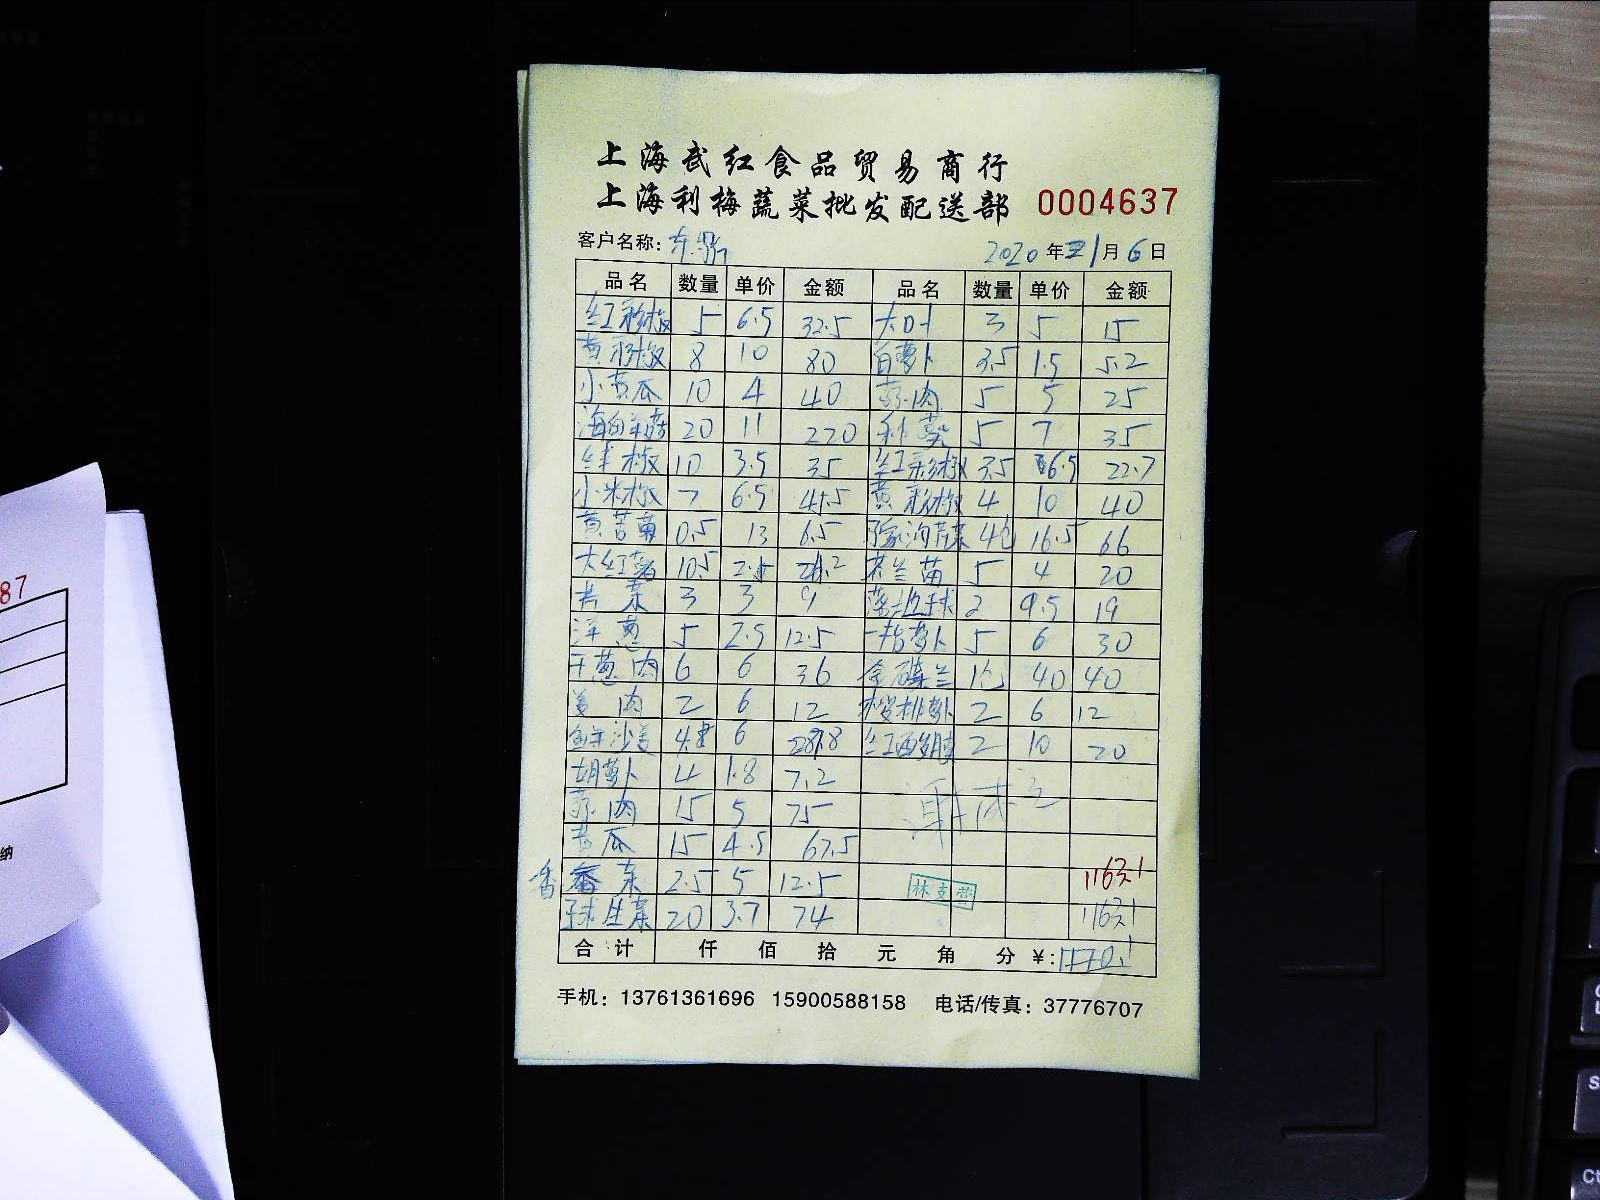 上海武红食品贸易商行
上海利梅蔬菜批发配送部 0004637
客户名称: 2020年 1月6日
品名 数量 单价 金额 品名 数量 单价 金额
红彩椒 5 6.5 32.5 大叶 3 5 15
黄彩椒 8 10 80 白萝卜 3.5 1.5 5.2
小黄瓜 10 4 40 蒜肉 5 5 25
海鲜菇 20 11 220 秋葵 5 7 35
绿椒 10 3.5 35 红彩椒 3.5 6.5 22.7
小米椒 7 6.5 45.5 黄彩椒 4 10 40
黄苦菊 0.5 13 6.5 4包 16.5 66
大红薯 10.5 苗 5 4 20
3 3 9 2 9.5 19
洋葱 5 2.5 12.5 萝卜 5 6 30
干葱肉 6 6 36 1包 40 40
姜肉 2 6 12 樱桃萝卜 2 6 12
鲜沙姜 4.8 6 28.8 2 10 20
胡萝卜 4 1.8 7.2
蒜肉 15 5 75
苦瓜 15 4.5 67.5
香菜 2.5 5 12.5 1163.1
球生菜 20 3.7 74 1163.1
合计 仟 佰 拾 元 角 分 ¥:
手机: 13761361696 15900588158 电话/传真: 37776707
87
纳